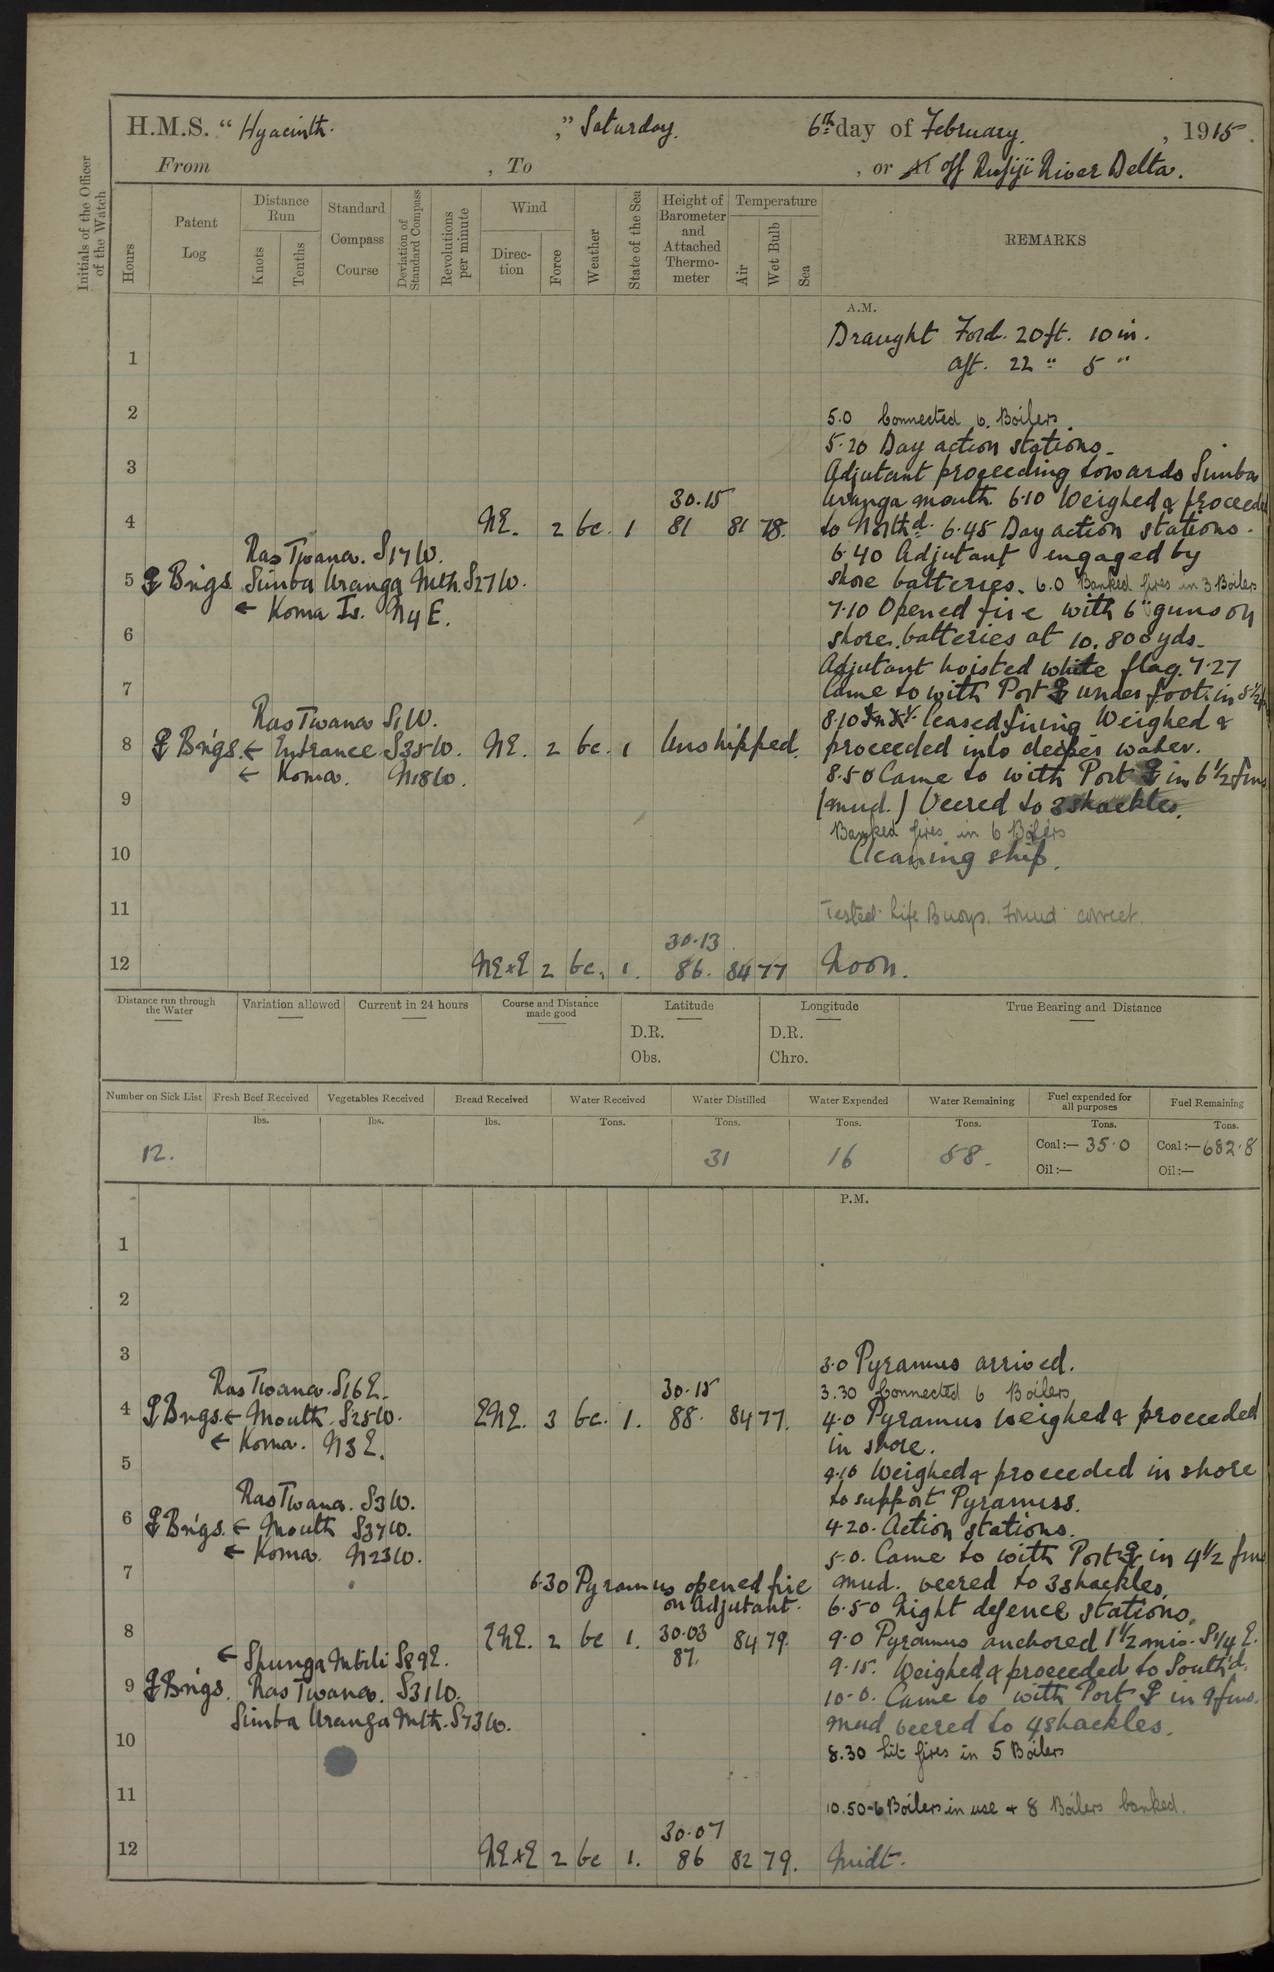 H.M.S. "Hyacinth." Saturday, 6th day of February, 1915.
From , To , or At off Rufiji River Delta.
Initials of the Officer of the Watch
Hours
Patent Log
Distance Run
Knots
Tenths
Standard Compass Course
Deviation of Standard Compass
Revolutions per minute
Wind
Direction
Force
Weather
State of the Sea
Height of Barometer and Attached Thermometer
Temperature
Air
Wet Bulb
Sea
REMARKS
A.M.
Draught Ford. 20ft. 10in.
1
aft. 22 " 5 "
2
5.0 Connected 6 Boilers
5.20 Day action stations.
3
Adjutant proceeding towards Simba
30.15
Uranga mouth. 6.10 Weighed & proceeded
4 NE. 2 bc. 1 81 81 78.
to North'd. 6.45 Day action stations.
Ras Twana. S17W.
6.40 Adjutant engaged by
5 Brngs. Simba Uranga Mth. S27W.
shore batteries. 6.0 Banked fires in 3 Boilers
← Koma Is. N4E.
7.10 Opened fire with 6" guns on
6
shore batteries at 10,800 yds.
Adjutant hoisted white flag. 7.27
7
Came to with Port under foot in 5½
Ras Twana S1W.
8.10 Ceased firing Weighed &
8 Brngs. ← Entrance S35W. NE. 2 bc. 1 Unshipped.
proceeded into deeper water.
← Koma. N18W.
8.50 Came to with Port in 6½ fms
9
(mud.) Veered to 3 shackles.
Banked fires in 6 Boilers
10
Cleaning ship.
11
Tested Life Buoys. Found correct.
30.13
12 NExE 2 bc. 1. 86. 84 77 Noon.
Distance run through the Water
Variation allowed
Current in 24 hours
Course and Distance made good
Latitude
D.R.
Obs.
Longitude
D.R.
Chro.
True Bearing and Distance
Number on Sick List
Fresh Beef Received
Vegetables Received
Bread Received
Water Received
Water Distilled
Water Expended
Water Remaining
Fuel expended for all purposes
Fuel Remaining
lbs. lbs. lbs. Tons. Tons. Tons. Tons. Tons. Tons.
12. 31 16 58. Coal:— 35.0 Coal:— 682.8
Oil:— Oil:—
P.M.
1
2
3
3.0 Pyramus arrived.
Ras Twana. S16E.
30.15
3.30 Connected 6 Boilers
4 Brngs. ← Mouth. S25W. ENE. 3 bc. 1. 88. 84 77.
4.0 Pyramus weighed & proceeded
← Koma. N3E.
in shore.
5
4.10 Weighed & proceeded in shore
Ras Twana. S3W.
to support Pyramus.
6 Brngs. ← Mouth S37W.
4.20. Action stations.
← Koma. N23W.
5.0. Came to with Port in 4½ fms
7
6.30 Pyramus opened fire on Adjutant.
mud. veered to 3 shackles.
6.50 Night defence stations.
8 ENE. 2 bc 1. 30.03 87. 84 79.
9.0 Pyramus anchored 1½ mis. S¼E.
← Shunga Mbili S89E.
9.15. Weighed & proceeded to South'd.
9 Brngs. Ras Twana. S31W.
10.0. Came to with Port in 9 fms.
Simba Uranga Mth. S73W.
mud veered to 4 shackles.
10
8.30 Lit fires in 5 Boilers
11
10.50 - 6 Boilers in use & 8 Boilers banked.
30.07
12 NExE 2 bc 1. 86 82 79. Midt.